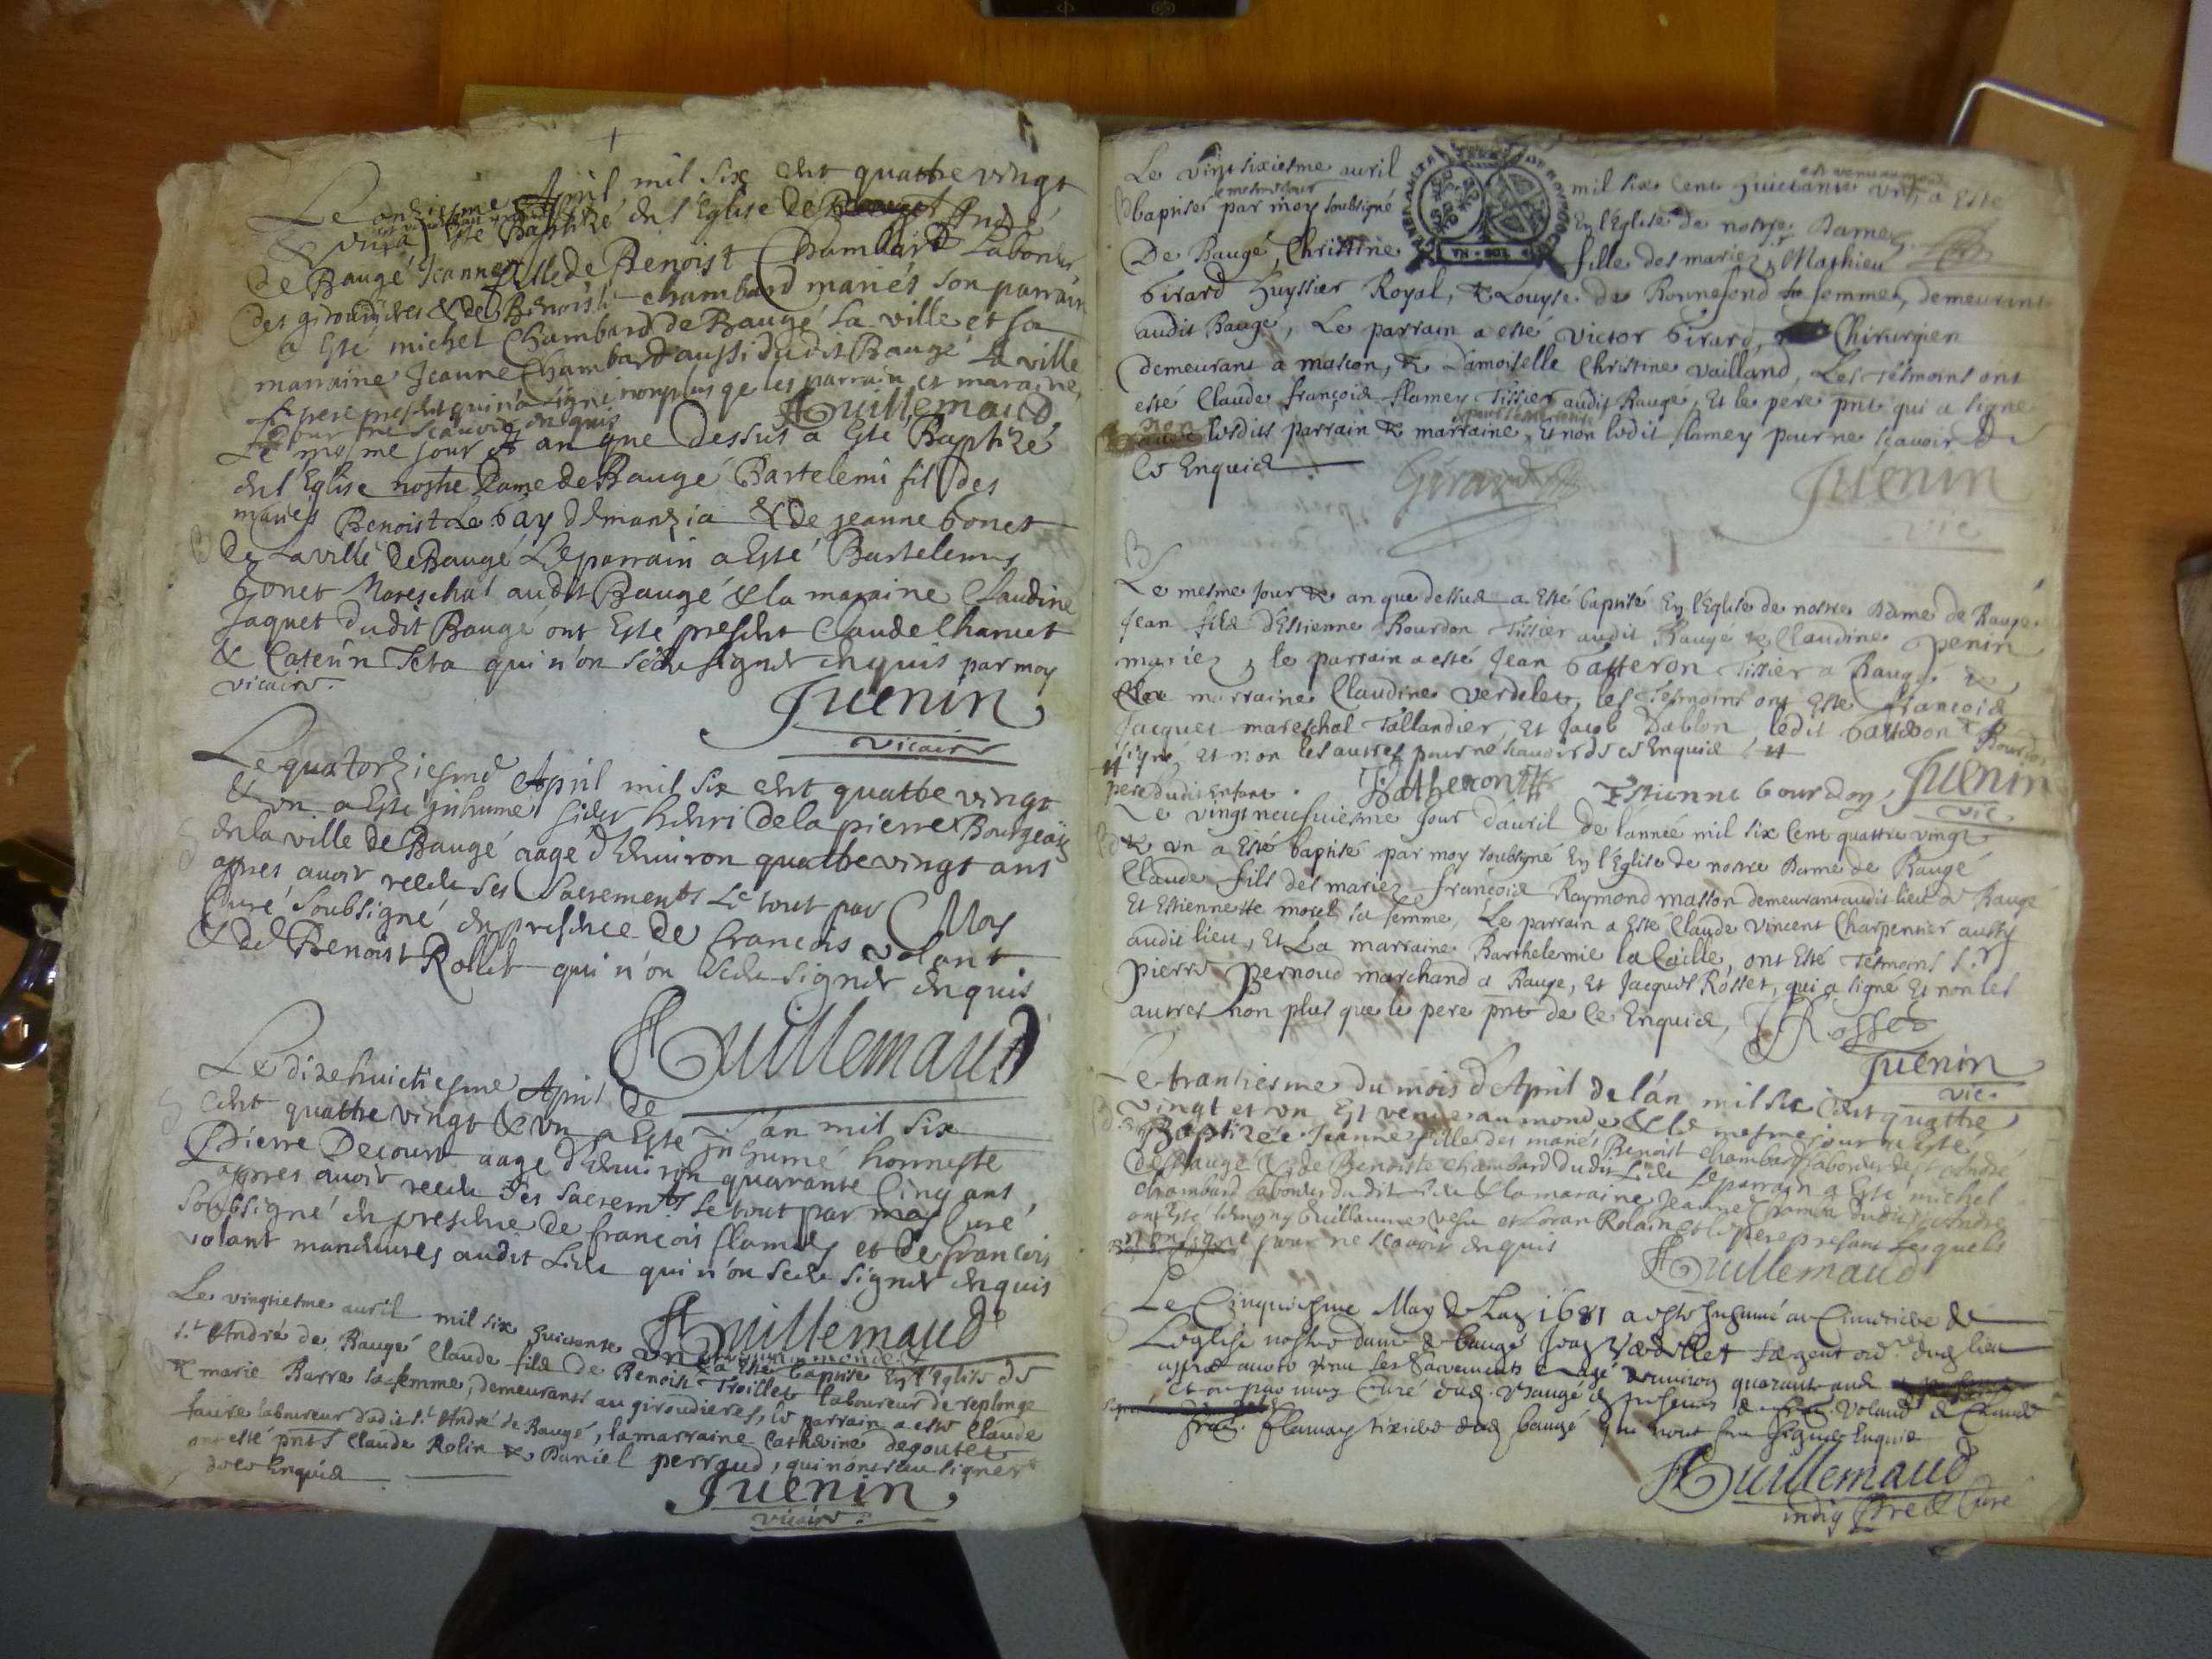 Le onziesme April mil six cent quattre vingt
& un a Esté Baptizé en l'Eglise de St André
de Baugé Jeanne fille de Benoist Chambard Laboureur
des giroudieres & de Benoiste chambard mariés son parrain
a Esté michel Chambard de Baugé La ville et sa
marraine Jeanne Chambard aussi dudit Baugé La ville
le pere present qui n'a signé nonplus qe les parrain et maraine
pour ne scavoir enquis
AGuillemaud
Le mesme jour & an que dessus a Esté Baptizé
en l'Eglise nostre Dame de Baugé Bartelemi fil des
mariés Benoist Le Gay d'Emanzia & de jeanne Gonet
de La ville de Baugé Le parrain a Esté Bartelemy
Gonet Mareschal audit Baugé & la maraine Claudine
Jaquet dudit Baugé ont Esté present Claude Charvet
& Caterin Teta qui n'on sceu signer enquis par moy
vicaire.
Juenin
vicaire
Le quatorziesme April mil six cent quattre vingt
& un a Esté inhumé sieur henri de la pierre Bourgeois
de la ville de Baugé aagé d'Environ quattre vingt ans
apres avoir receu ses Sacrements Le tout par Moy
Curé Soubsigné en presence de francois volant
& de Benoist Rollet qui n'on sceu signer enquis
AGuillemaud
Le dixehuictiesme April de l'an mil six
cent quattre vingt & un a Esté inhumé honneste
Pierre Decourt aagé d'Environ quarante Cinq ans
apres avoir receu ses sacremts Le tout par moy Curé
Soubsigné en presence de françois flamey et de francois
volant manouvres audit Lieu qui n'on sceu signer enquis
AGuillemaud
Le vingtiesme avril mil six huictante un a esté baptisé En l'Eglise de
St André de Baugé Claude fils de Benoist Troillet laboureur de replonge
& marie Barre sa femme, demeurants au giroudieres, le parrain a esté Claude
faure laboureur dudit St André de Baugé, la marraine Catherine degoutet
ont esté pnts Claude Rolin & Daniel perraud, qui n'ont sceu signer
de ce Enquis
Juenin
vicaire
Le vingt sixiesme avril mil six Cent huictante un, a Esté
baptisée par moy soubsigné En l'Eglise de nostre Dame
De Baugé, Christine fille des mariez Mathieu
Girard huyssier Royal, & Louyse de Bonnefond sa femme, demeurant
audit Baugé, Le parrain a esté victor Girard, Chirurgien
demeurant a mascon, & Damoiselle Christine vailland, Les tesmoins ont
esté Claude françois flamey Tissier audit Baugé, Et le pere pnt qui a signé
lesdits parrain & marraine, Et non ledit flamey pour ne sçavoir de
ce Enquis
Girard
Juenin
vic
Le mesme jour & an que dessus a Esté baptisé En l'Eglise de nostre Dame de Baugé
Jean fils d'Estienne Bourdon Tissier audit Baugé & Claudine penin
mariez, le parrain a esté Jean batteron Tissier a Baugé &
la marraine Claudine verdelet, les tesmoins ont Esté françois
Jacquet mareschal Tallandier, Et Jacob Dablon, ledit batteron & Bourdon
signé, Et non les autres pour ne scavoir de ce Enquis
pere dudit Enfant.
Batheron
Estienne bourdon
Juenin
vic
Le vingt neufviesme jour d'avril de l'année mil six Cent quattre vingt
& un a Esté baptisé par moy soubsigné En l'Eglise de nostre Dame de Baugé
Claude fils des mariez françois Raymond masson demeurant audit lieu de Baugé
Et Estiennette morel sa femme, Le parrain a Esté Claude Vincent Charpentier aussy
audit lieu, Et La marraine Barthelemie la Caille, ont Esté tesmoins Sr
pierre pernoud marchand a Bauge, Et Jacques Rosset, qui a signé Et non les
autres non plus que le pere pnt de ce Enquis,
JRosset
Juenin
vic.
Le trantiesme du mois d'April de l'an mil six Cent quattre
vingt et un Est venue au monde & le mesme jour a Esté
Baptizée Jeanne fille des mariés Benoist Chambard laboureur de St André
de Baugé & de Benoiste chambard dudit Lieu Le parrain a Esté michel
chambard laboureur dudit Lieu & la maraine Jeanne Chambard dudit St André
ont Esté temoing Guillaume vesu et Loran Rolain et le pere present Lesquels
n'ont signé pour ne scavoir enquis
AGuillemaud
Le Cinquiesme May de Lan 1681 a esté Inhumé au Cimetiere de
Leglise nostre dame de baugé Jean Verdellet sergent ord.re dud lieu
apres avoir receu les Sacrements aagé d'environ quarante ans
et ce par moy Curé dud. Baugé en presence de Voland & Claude
fran. flamay tixier dud bauge qui nont sceu signer Enquis
AGuillemaud
indig pbre & Curé